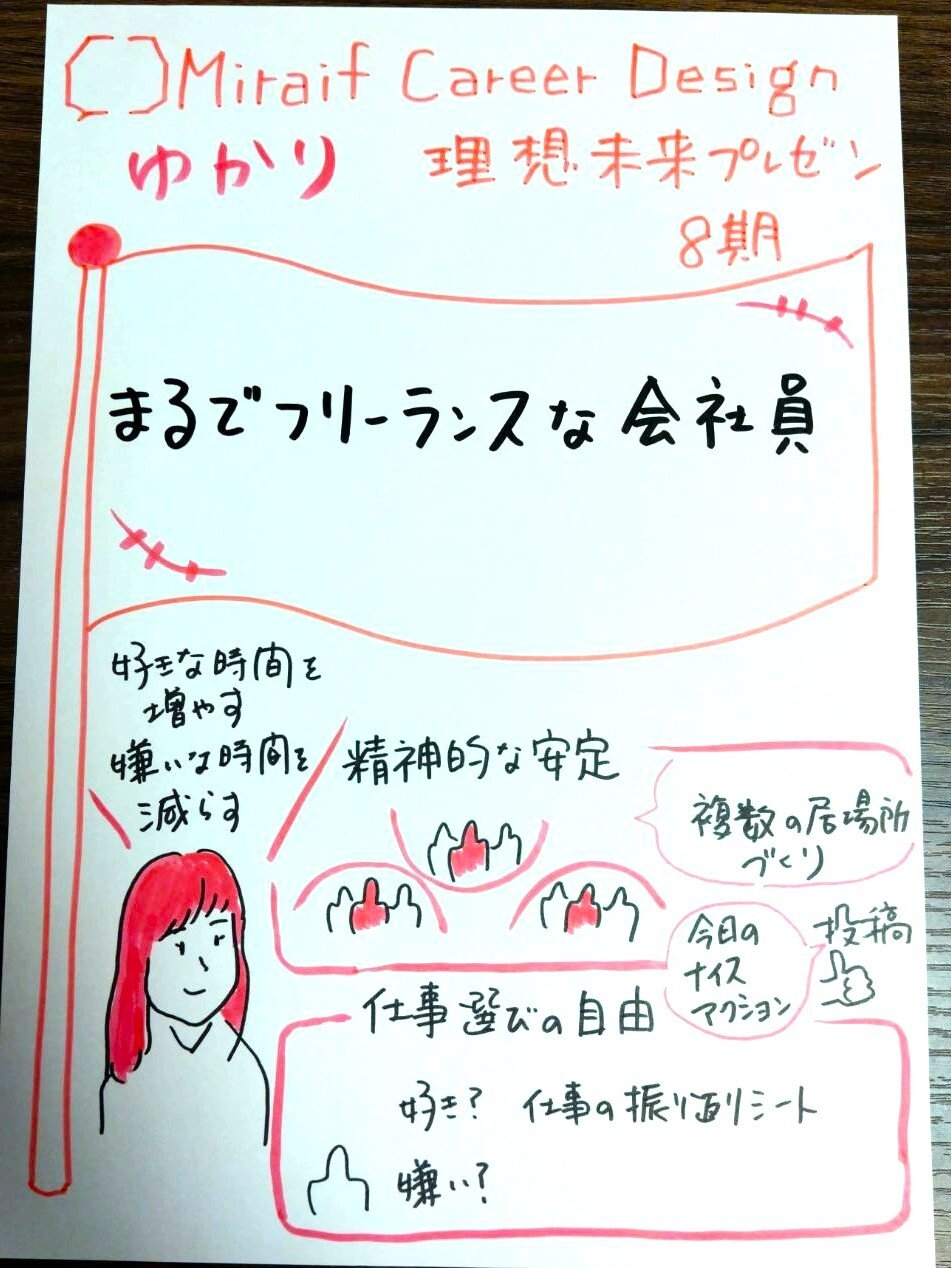 Miraif Career Design
ゆかり 理想未来プレゼン
8期
まるでフリーランスな会社員
好きな時間を
増やす
嫌いな時間を
減らす
精神的な安定
複数の居場所
づくり
今日の
ナイス
アクション
投稿
仕事選びの自由
好き? 仕事の振り返りシート
嫌い?